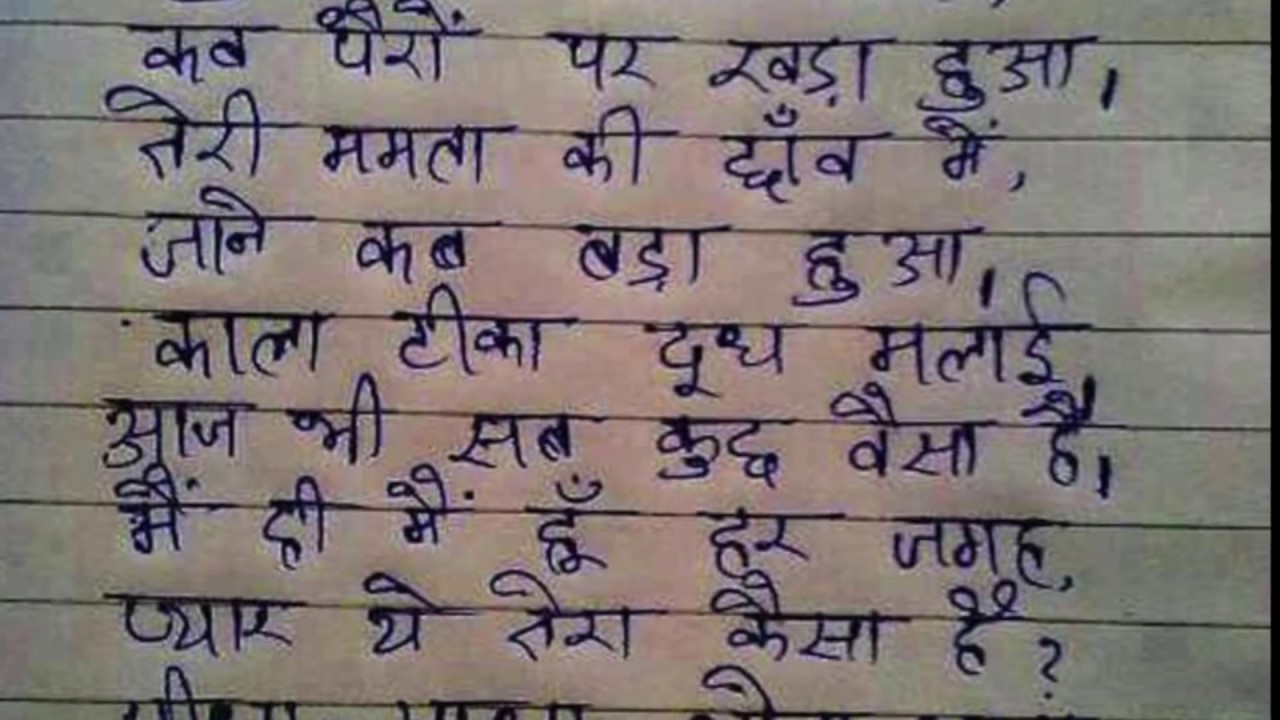 कब पैरों पर खड़ा हुआ,
तेरी ममता की छाँव में,
जाने कब बड़ा हुआ,
काला टीका दूध मलाई,
आज भी सब कुछ वैसा है,
मैं ही मैं हूँ हर जगह,
प्यार ये तेरा कैसा है?